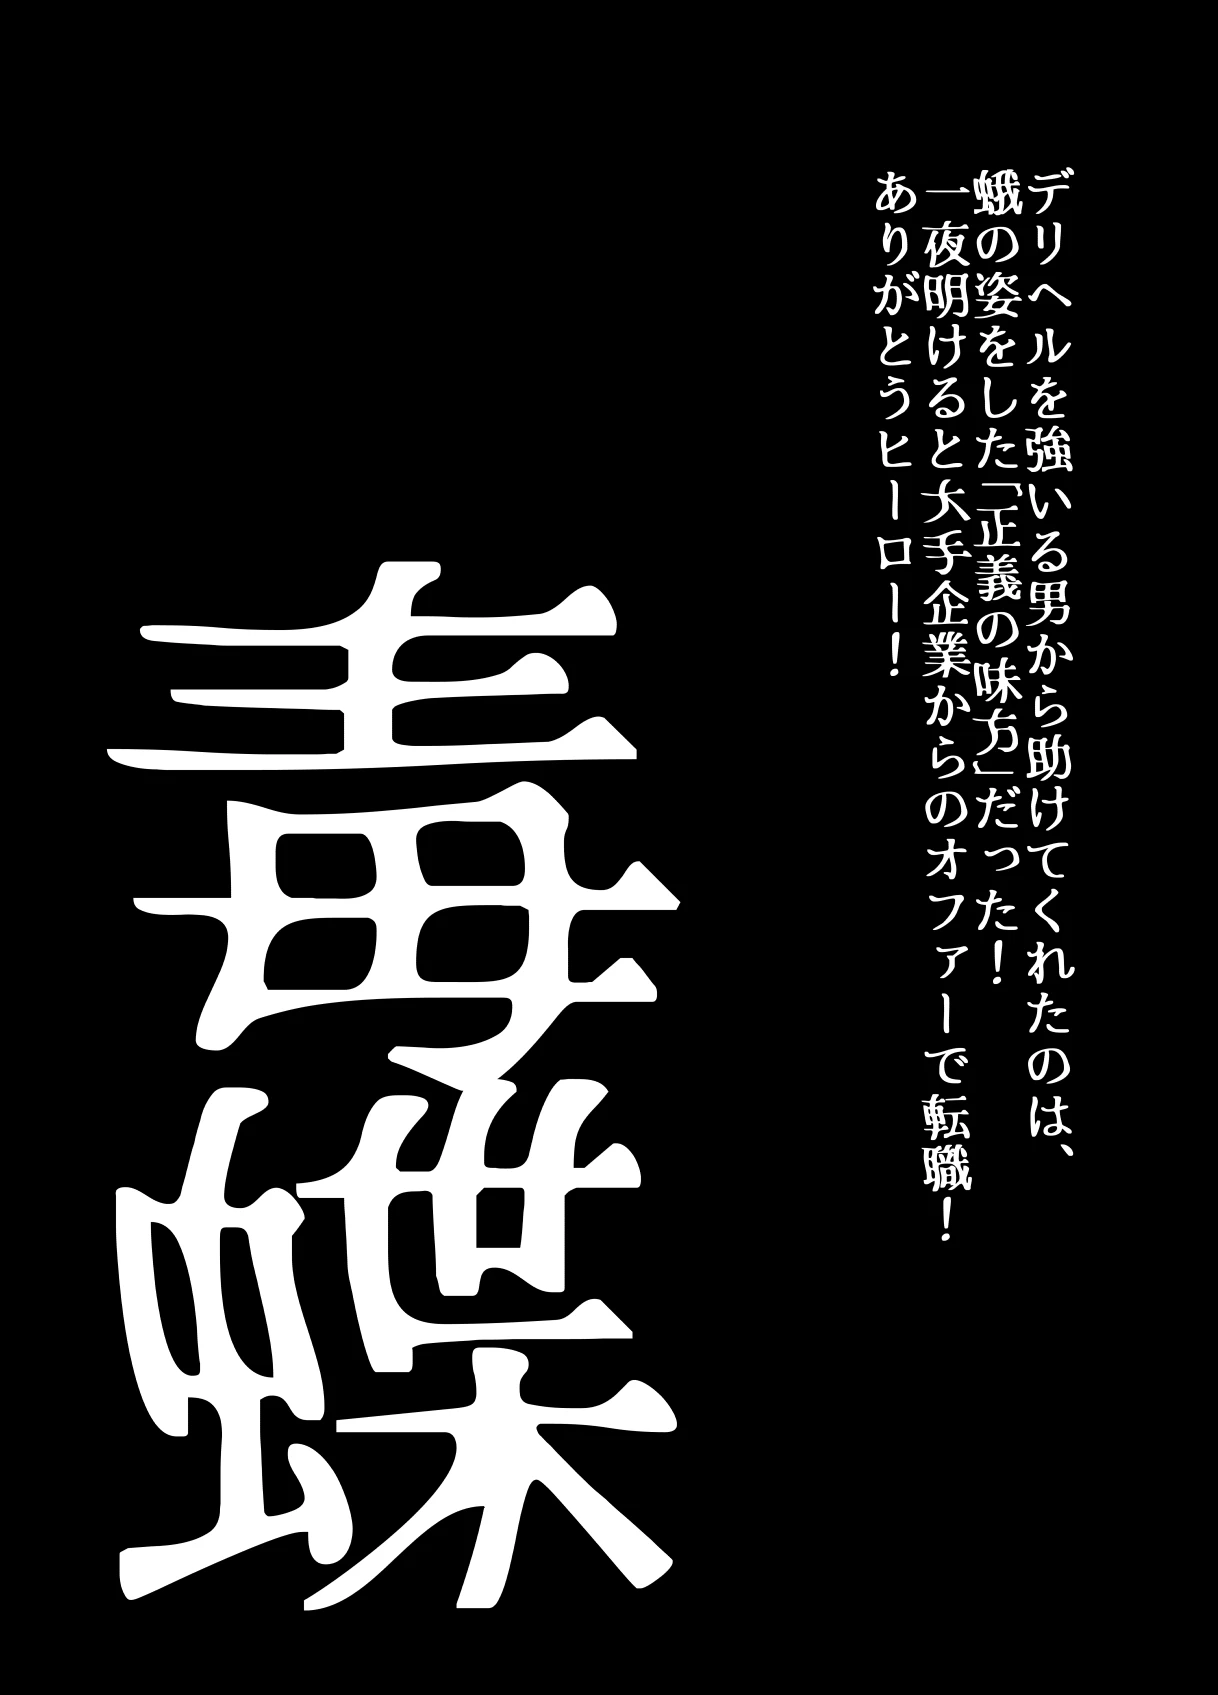 デリヘルを強いる男から助けてくれたのは、
蛾の姿をした「正義の味方」だった！
一夜明けると大手企業からのオファーで転職！
ありがとうヒーロー！
毒蝶